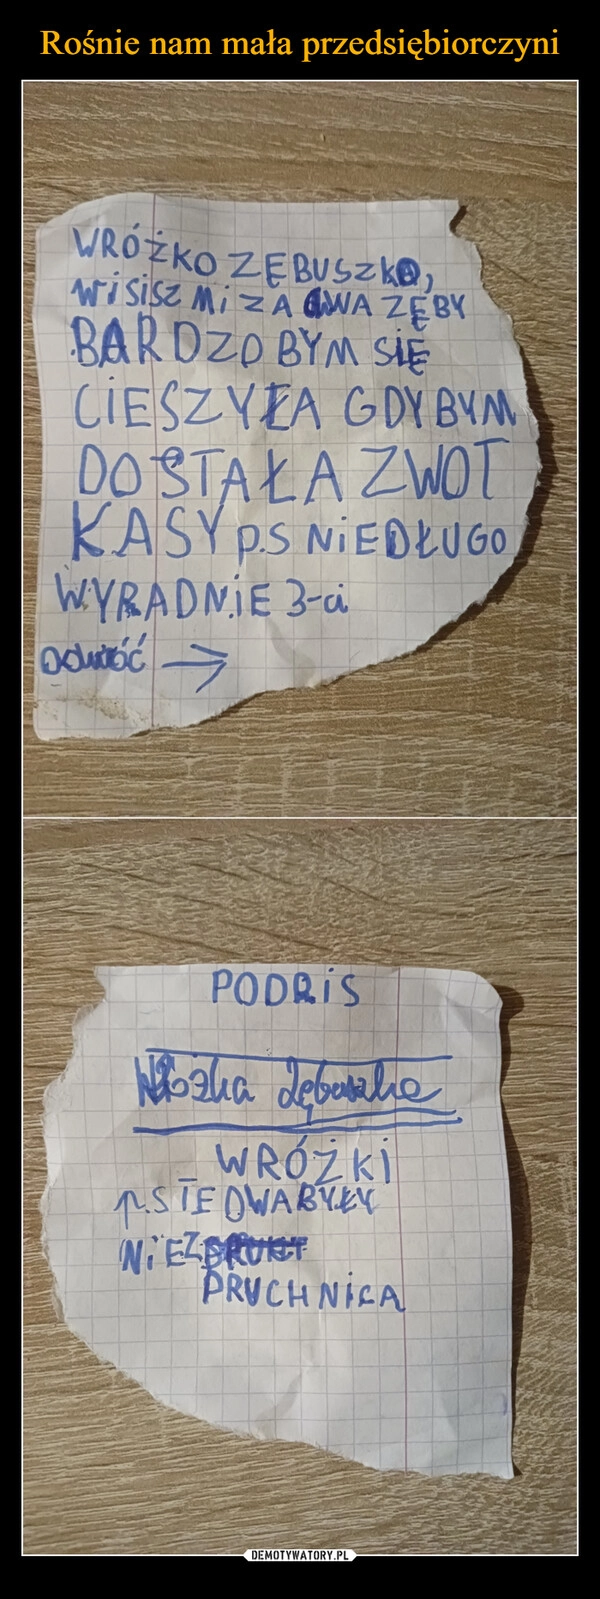 Rośnie nam mała przedsiębiorczyni
WRÓŻKO ZĘBUSZKO,
WiSiSZ Mi ZA DWA ZĘBY
BARDZO BYM SIĘ
CiESZYŁA GDYBYM
DOSTAŁA ZWOT
KASY P.S NiEDŁUGO
WYPADNiE 3-ci
Odwróć →
PODPiS
Wróżka Zębuszka
WRÓŻKi
P.S TE DWA BYŁY
NiEZ
PRUCHNiCA
DEMOTYWATORY.PL